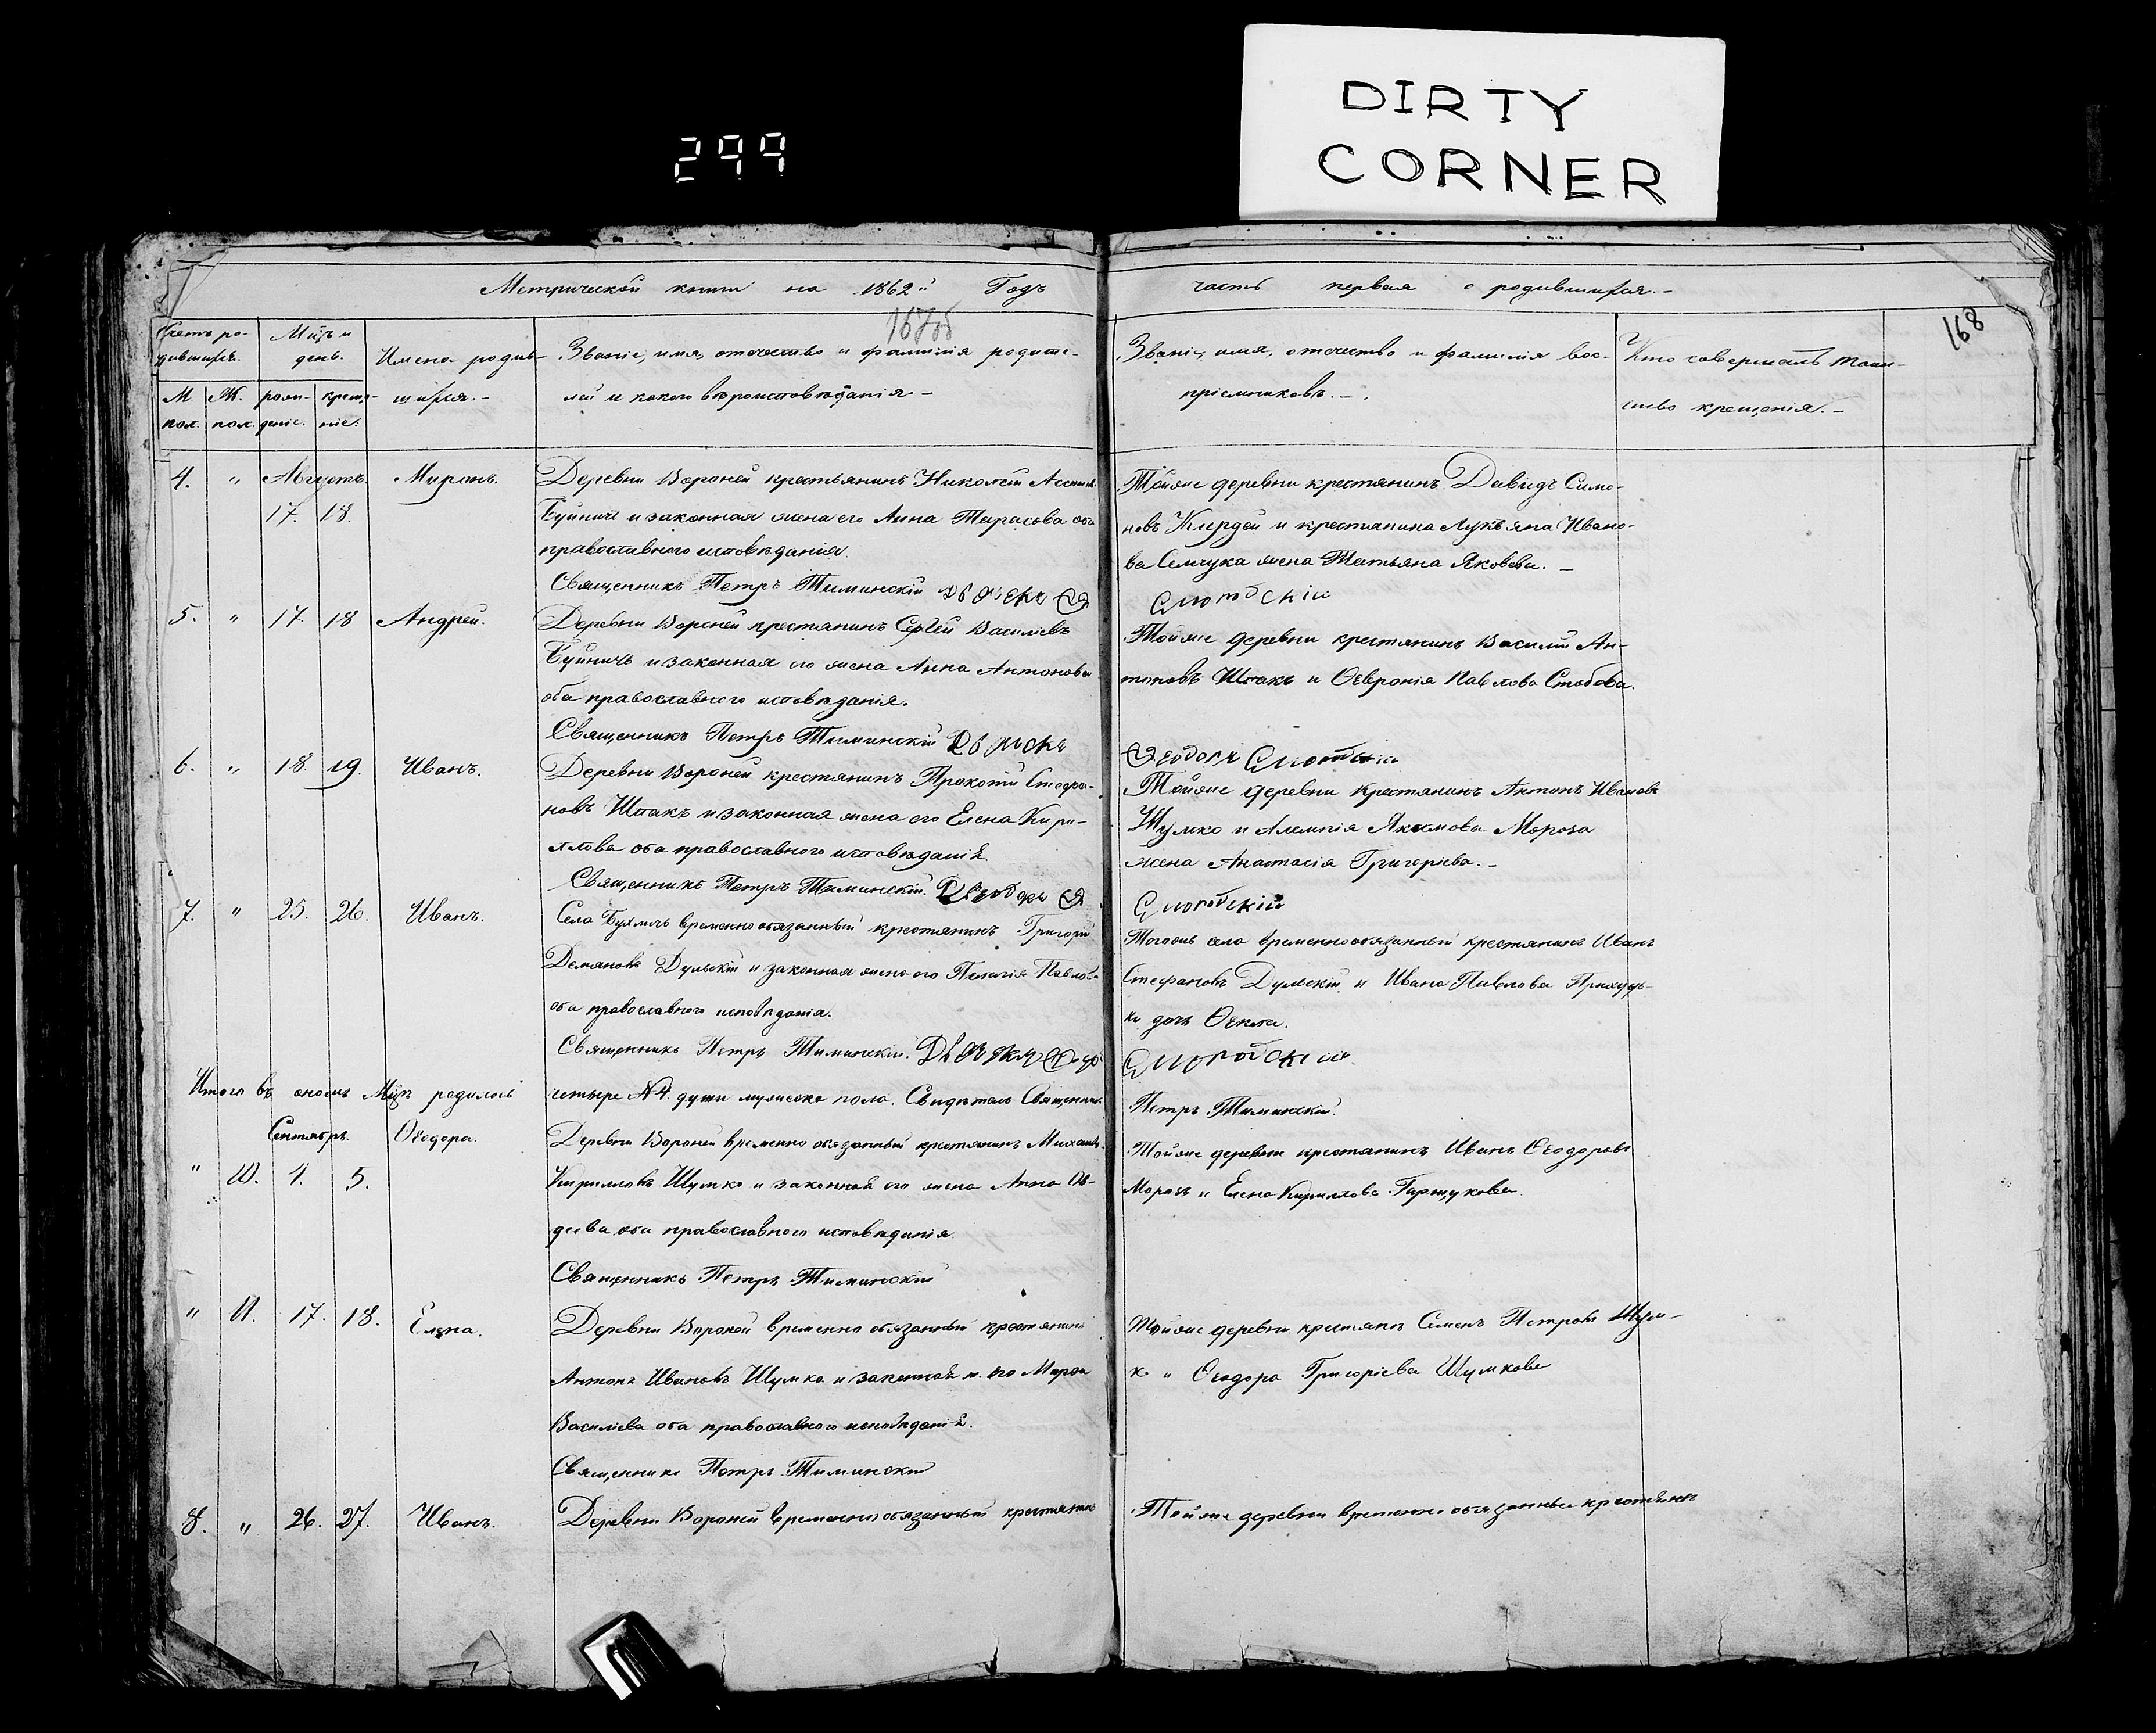 DIRTY
CORNER
299
Метрической книги на 1862й Годъ
часть первая о родившихся.-
167об
168
Счетъ ро-
дившихъ.
Мцъ и
день.
Имена родив-
шихся.-
Званіе, имя, отечество и фамилія родите-
лей и какого вѣроисповѣданія-
Званіе, имя, отечество и фамилія вос-
пріемниковъ.-
Кто совершалъ таин-
ство крещенія.-
М
пол.
Ж.
пол.
рож-
деніе.
креще-
ніе.
4. " Августъ Миронъ. Деревни Вороней крестьянинъ Николай
17. 18. и законная жена его Анна Тарасова оба
православнаго исповѣданія.
Священникъ Петръ Тиминскій
Тойже деревни крестянинъ Давидъ Симо-
новъ Кирдей и крестянина Лукъяна Ивано-
ва Семчука жена Татьяна Яковева.-
5. " 17. 18 Андрей. Деревни Вороней крестянинъ Сергей Василіевъ
и законная его жена Анна Антонова
оба православнаго исповѣданія.
Священникъ Петръ Тиминскій
Тойже деревни крестянинъ Василій Ан-
тоновъ Шпакъ и Ѳевронія Павлова
Ѳеодоръ
6. " 18. 19. Иванъ. Деревни Вороней крестянинъ Прокопій Стефа-
новъ Шпакъ и законная жена его Елена Кири-
лова оба православнаго исповѣданія.
Священникъ Петръ Тиминскій.
Тойже деревни крестянинъ Антонъ Ивановъ
Шумко и Алемпія Якимова Мороза
жена Анастасія Григоріева.-
7. " 25. 26. Иванъ. Села временнообязанный крестянинъ Григорій
Демяновъ Дульскій и законная жена его Пелагія Павлова
оба православнаго исповѣданія.
Священникъ Петръ Тиминскій.
Тогожъ села временнообязанный крестянинъ Иванъ
Стефановъ Дульскій и Ивана Павлова Приходь-
ка дочь Ѳекла.
Итого въ ономъ Мцѣ родилось четыре №4. души мужеска пола. Свидѣтель Священникъ
Петръ Тиминскій.
Сентябрь. Ѳеодора. Деревни Вороней временно обязанный крестянинъ Михаилъ
" 10. 4. 5. Кирилловъ Шумко и законная его жена Анна Ов-
деева оба православнаго исповѣданія.
Священникъ Петръ Тиминскій
Тойже деревни крестянинъ Иванъ Ѳеодоровъ
Морозъ и Елена Кириллова
" 11. 17. 18. Елена. Деревни Вороней временно обязанный крестянинъ
Антонъ Ивановъ Шумко и законная ж. его Марѳа
Василіева оба православнаго исповѣданія.
Священникъ Петръ Тиминскій
Тойже деревни крестянинъ Семенъ Петровъ Шум-
ко и Ѳеодора Григоріева Шумкова
8. " 26. 27. Иванъ. Деревни Вороней временнообязанный крестянинъ
Тойже деревни временно обязанный крестянинъ